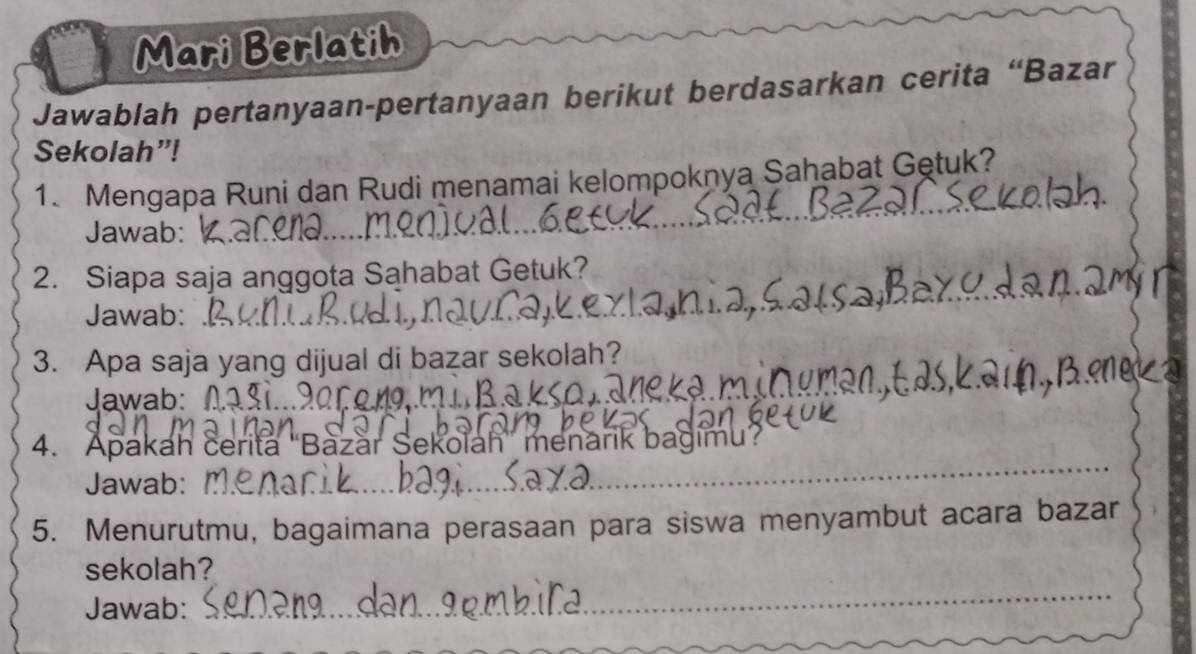 Mari Berlatih
Jawablah pertanyaan-pertanyaan berikut berdasarkan cerita “Bazar
Sekolah”!
1. Mengapa Runi dan Rudi menamai kelompoknya Sahabat Getuk?
Jawab: karena menjual Getuk saat Bazar sekolah.
2. Siapa saja anggota Sahabat Getuk?
Jawab: Runi, Rudi, naura, keyla, nia, Salsa, Bayu dan amyr
3. Apa saja yang dijual di bazar sekolah?
Jawab: nasi goreng, mi, Bakso, aneka minuman, tas, kain, Boneka
dan mainan dari barang bekas dan Getuk
4. Apakah cerita “Bazar Sekolah” menarik bagimu?
Jawab: menarik bagi saya
5. Menurutmu, bagaimana perasaan para siswa menyambut acara bazar
sekolah?
Jawab: Senang dan gembira